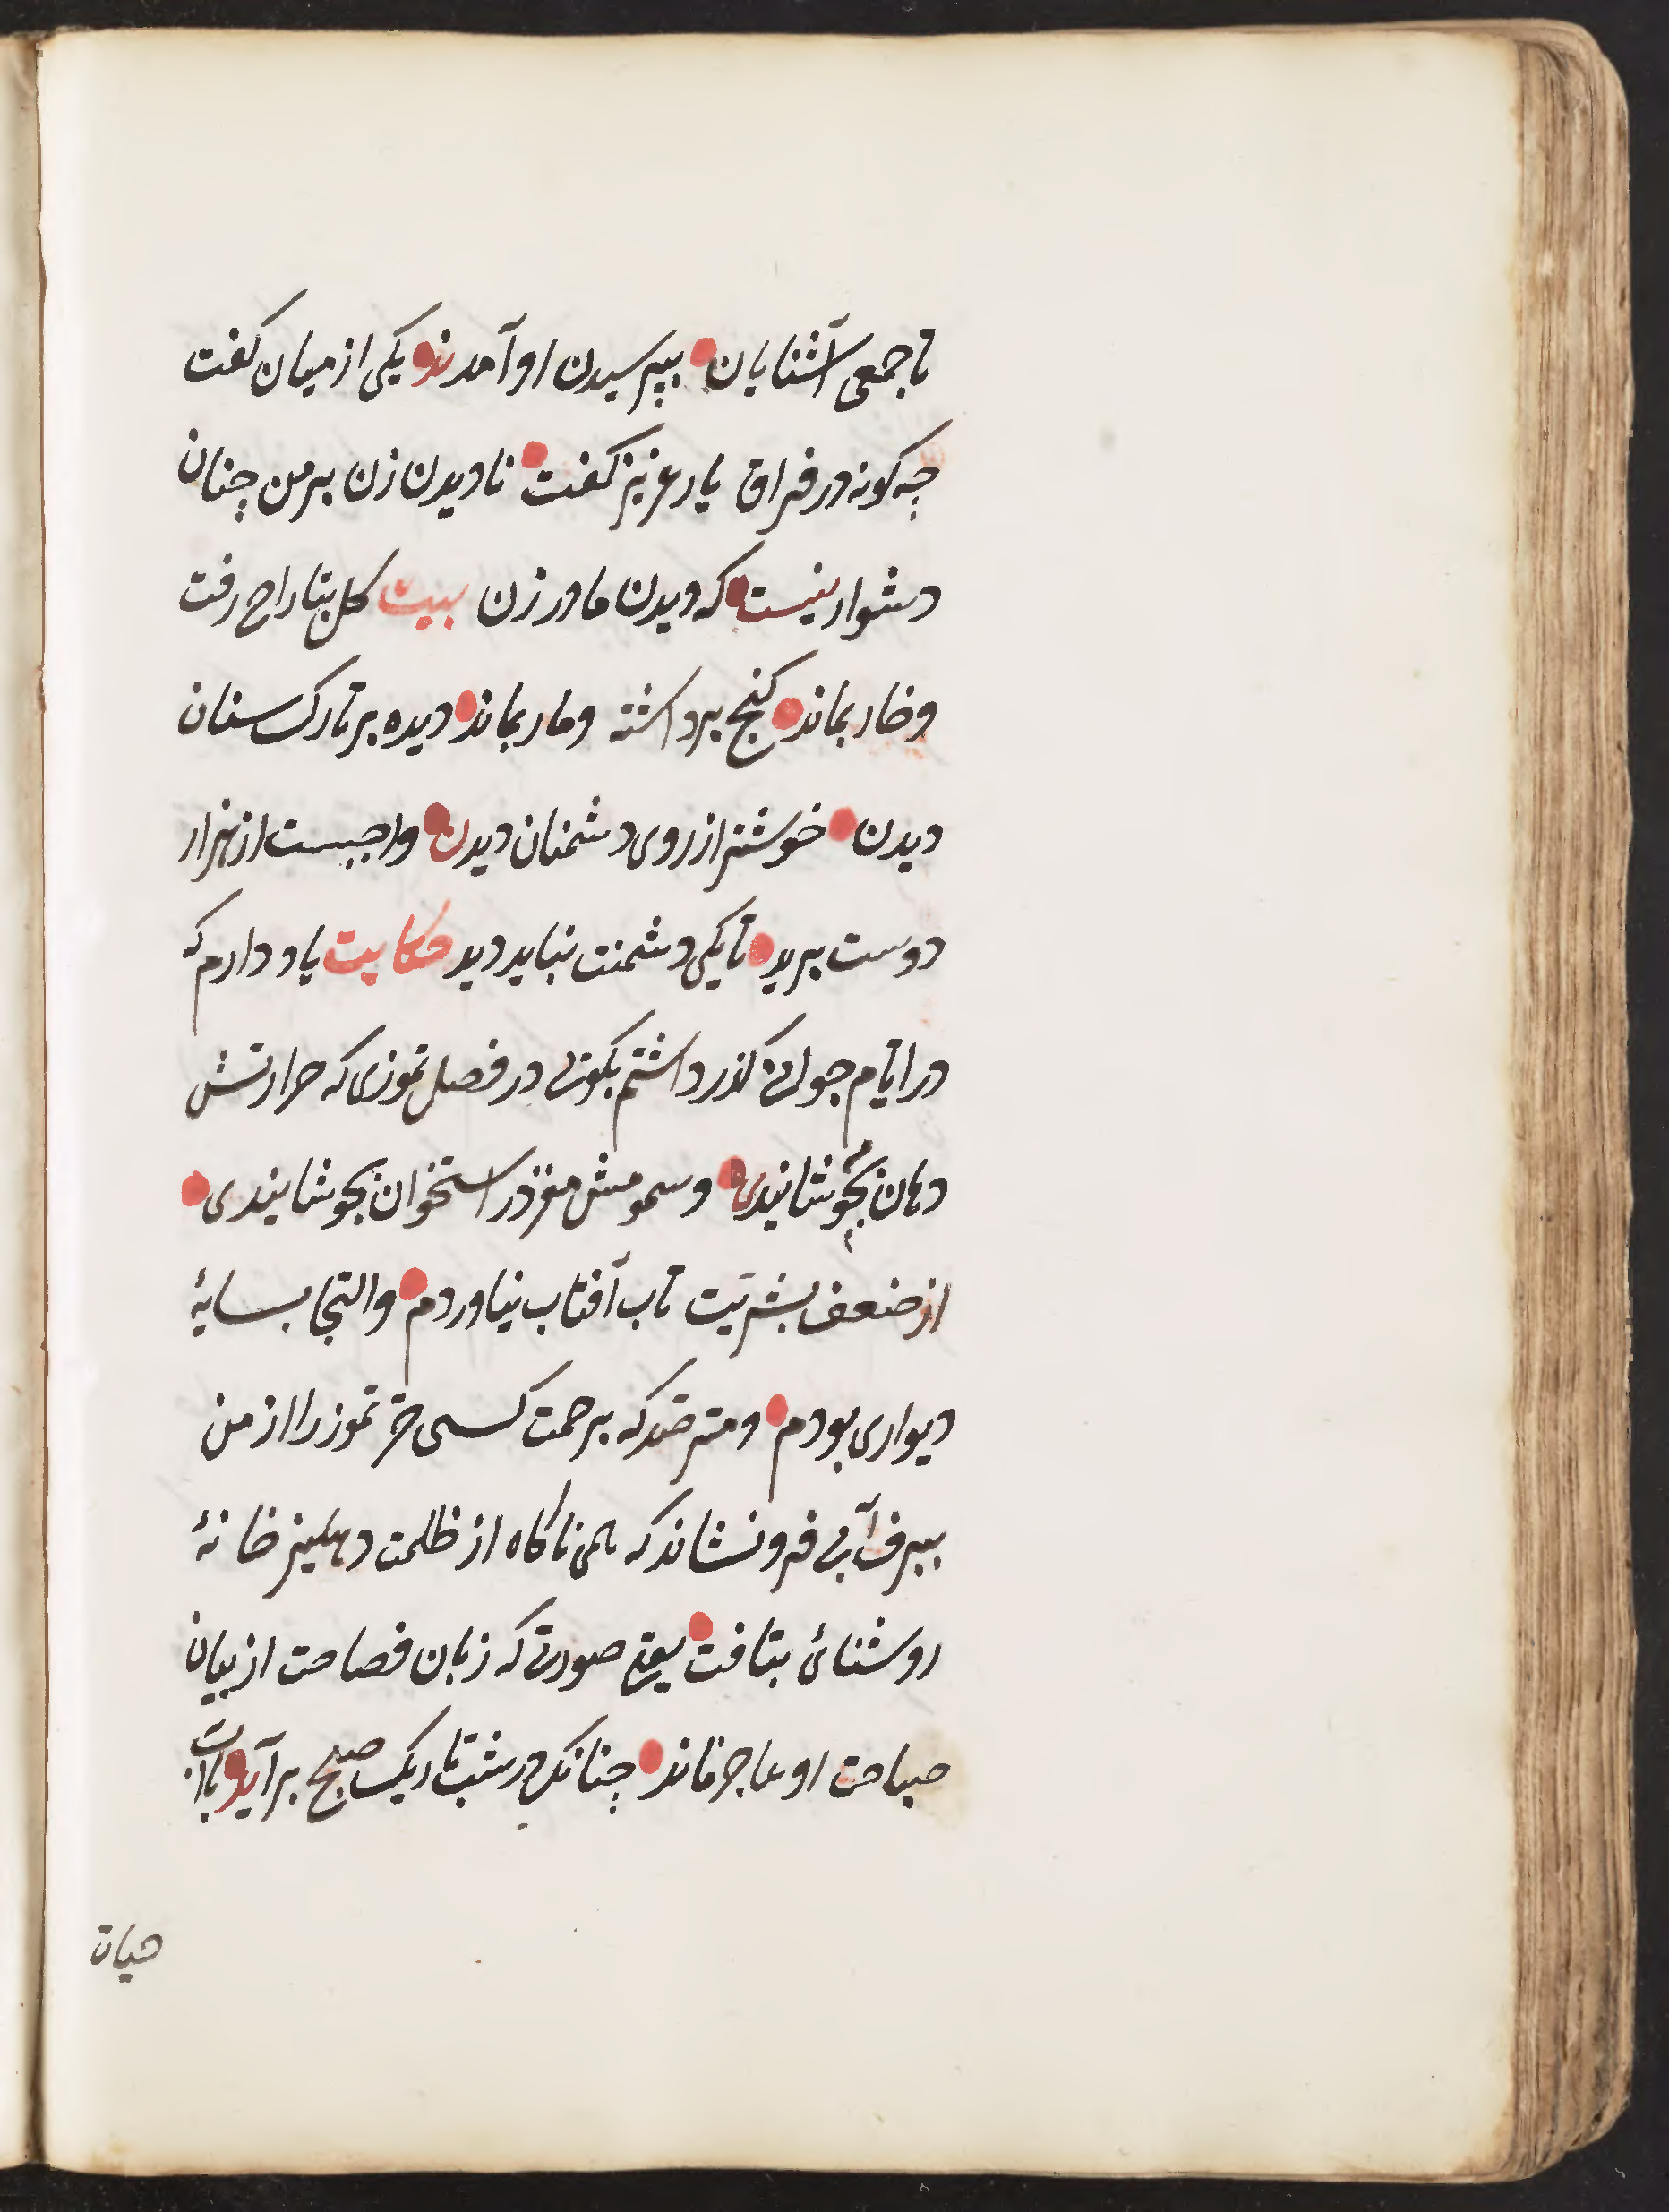 تا جمعی آشنایان بپرسیدن او آمدند یکی از میان کفت
چه کونه در فراق یار عزیز کفت نادیدن زن بر من چنان
دشوار نیست که دیدن مادر زن بیت کل بتاراج رفت
و خار بماند کنج برداشته و مار بماند دیده بر تارک سنان
دیدن خوشتر از روی دشمنان دیدن واجبست از هزار
دوست برید تا یکی دشمنت نباید دید حکایت یاد دارم که
در ایّام جوانی کذر داشتم بکویی در فصل تموزی که حرارتش
دهان بخوشانیدی و سمومش مغز در استخوان بجوشانیدی
از ضعف بشریّت تاب آفتاب نیاوردم و التجا بسایهٔ
دیواری بودم و مترصّد که برحمت کسی حرّ تموز را از من
ببرف آبی فرو نشاند که همی ناکاه از ظلمت دهلیز خانهٔ
روشنائی بتافت یعنی صورتی که زبان فصاحت از بیان
صباحت او عاجز ماند چنانک در شب تاریک صبح برآید یا آب
حیات